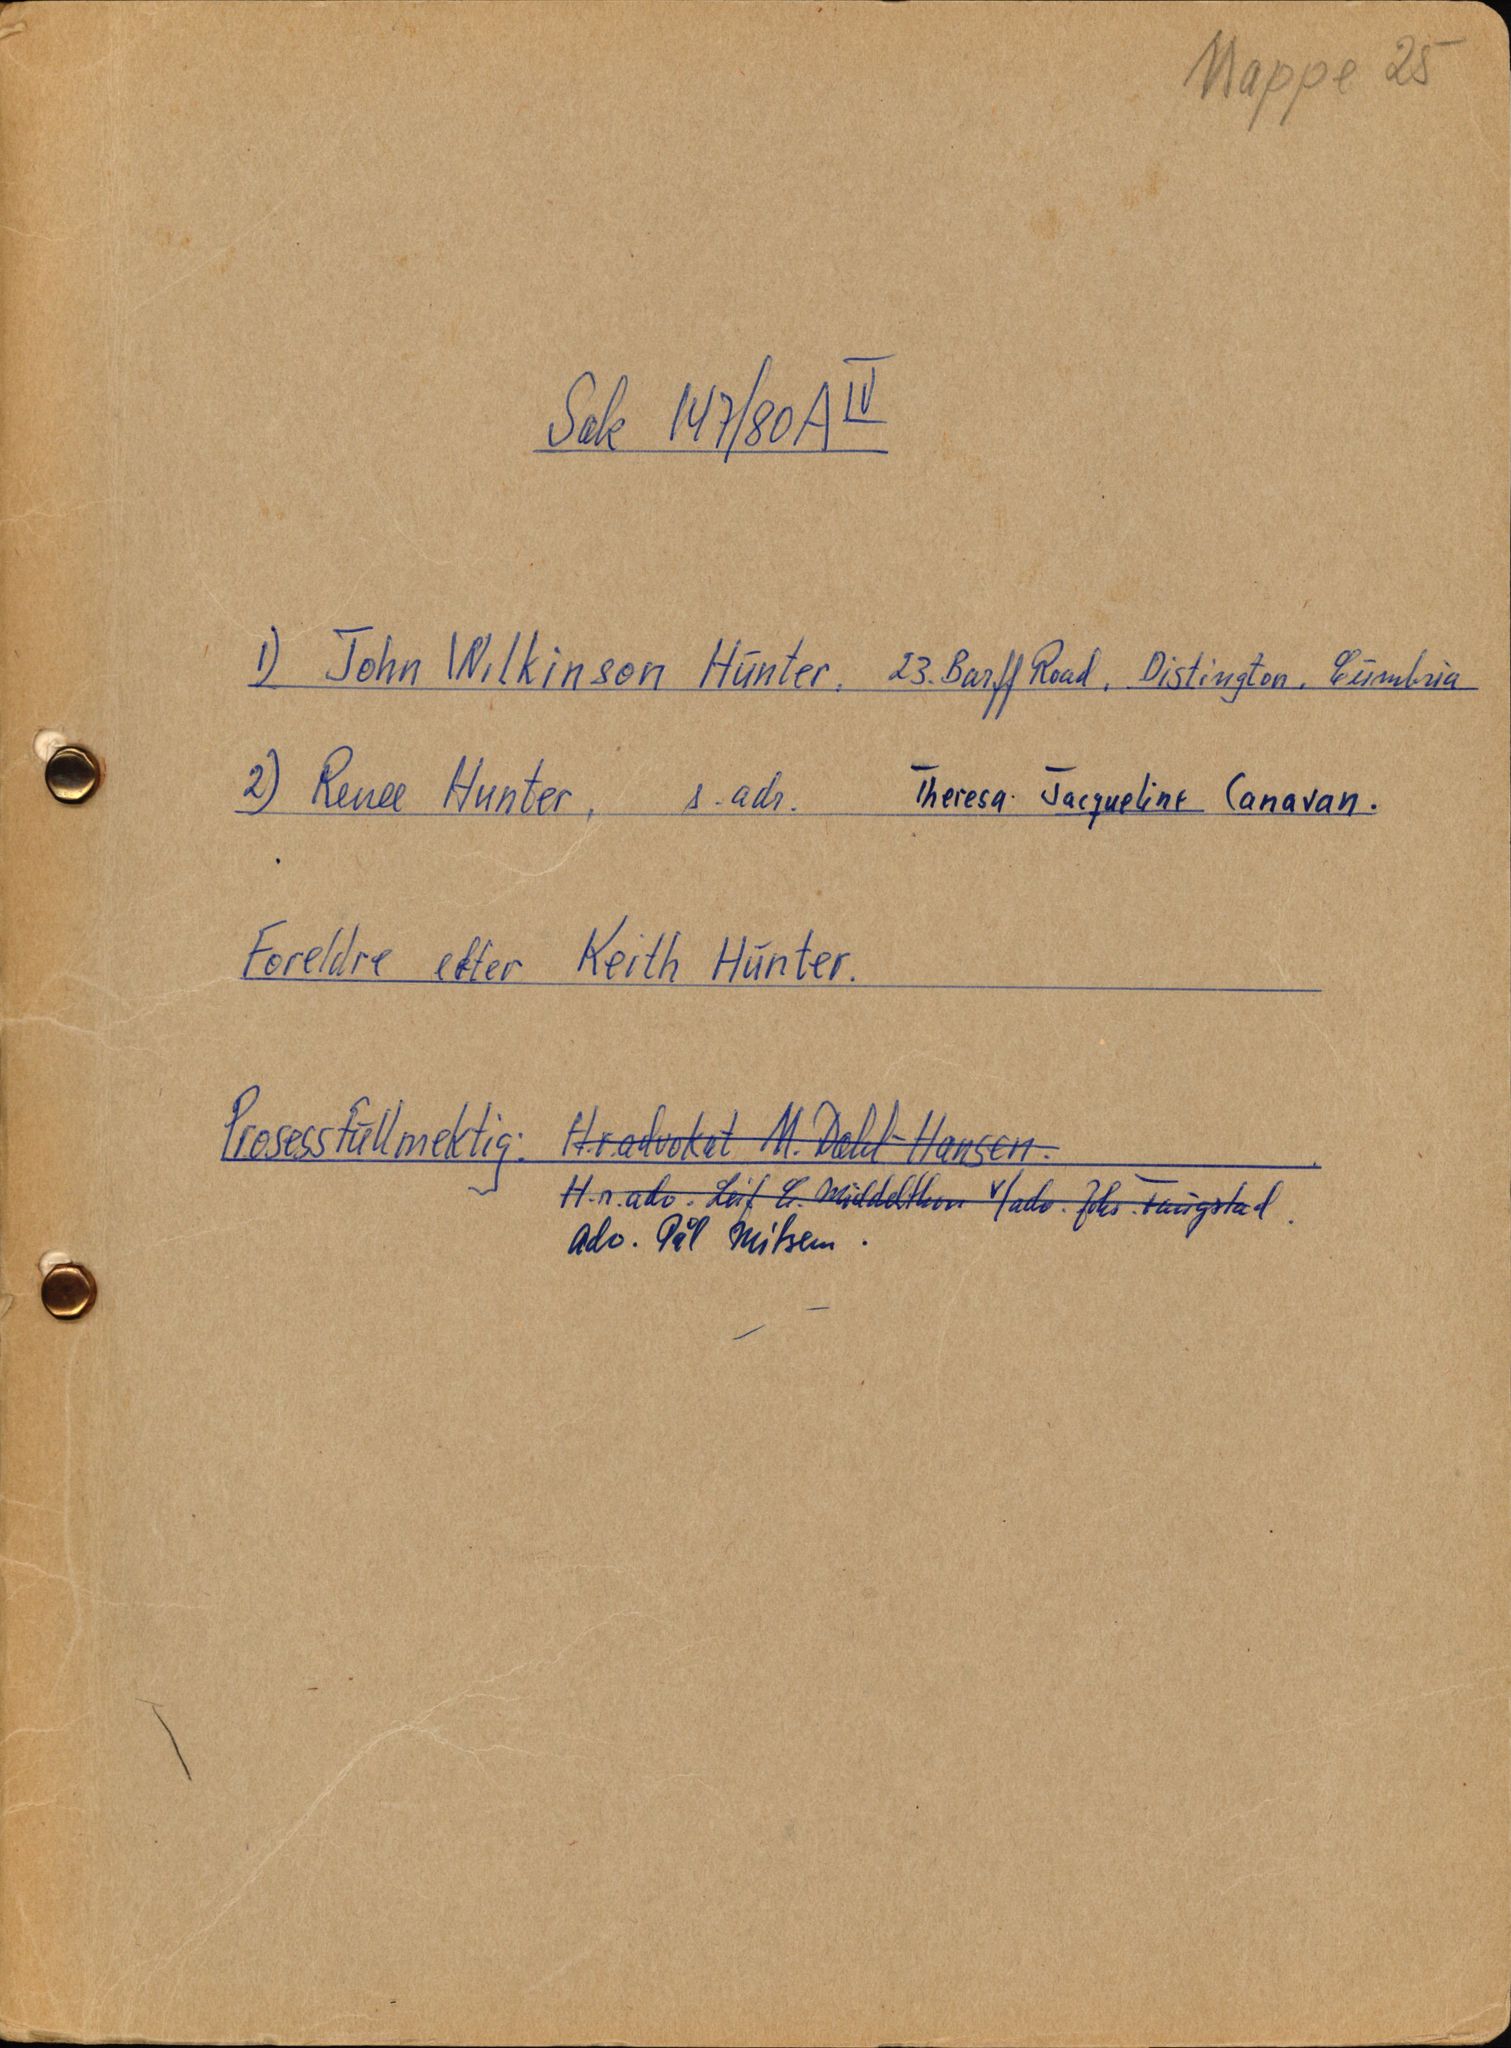 Mappe 25
Sak 147/80 A IV
1) John Wilkinson Hunter, 23. Barff Road, Distington, Cumbria
2) Renee Hunter, s. adr. Theresa Jacqueline Canavan.
Foreldre etter Keith Hunter.
Prosessfullmektig: H.r.advokat M. Dahl-Hansen.
H.r.adv. Leif E. Middelthon v/adv. Johs. Taugstad.
Adv. Pål Mitsem.